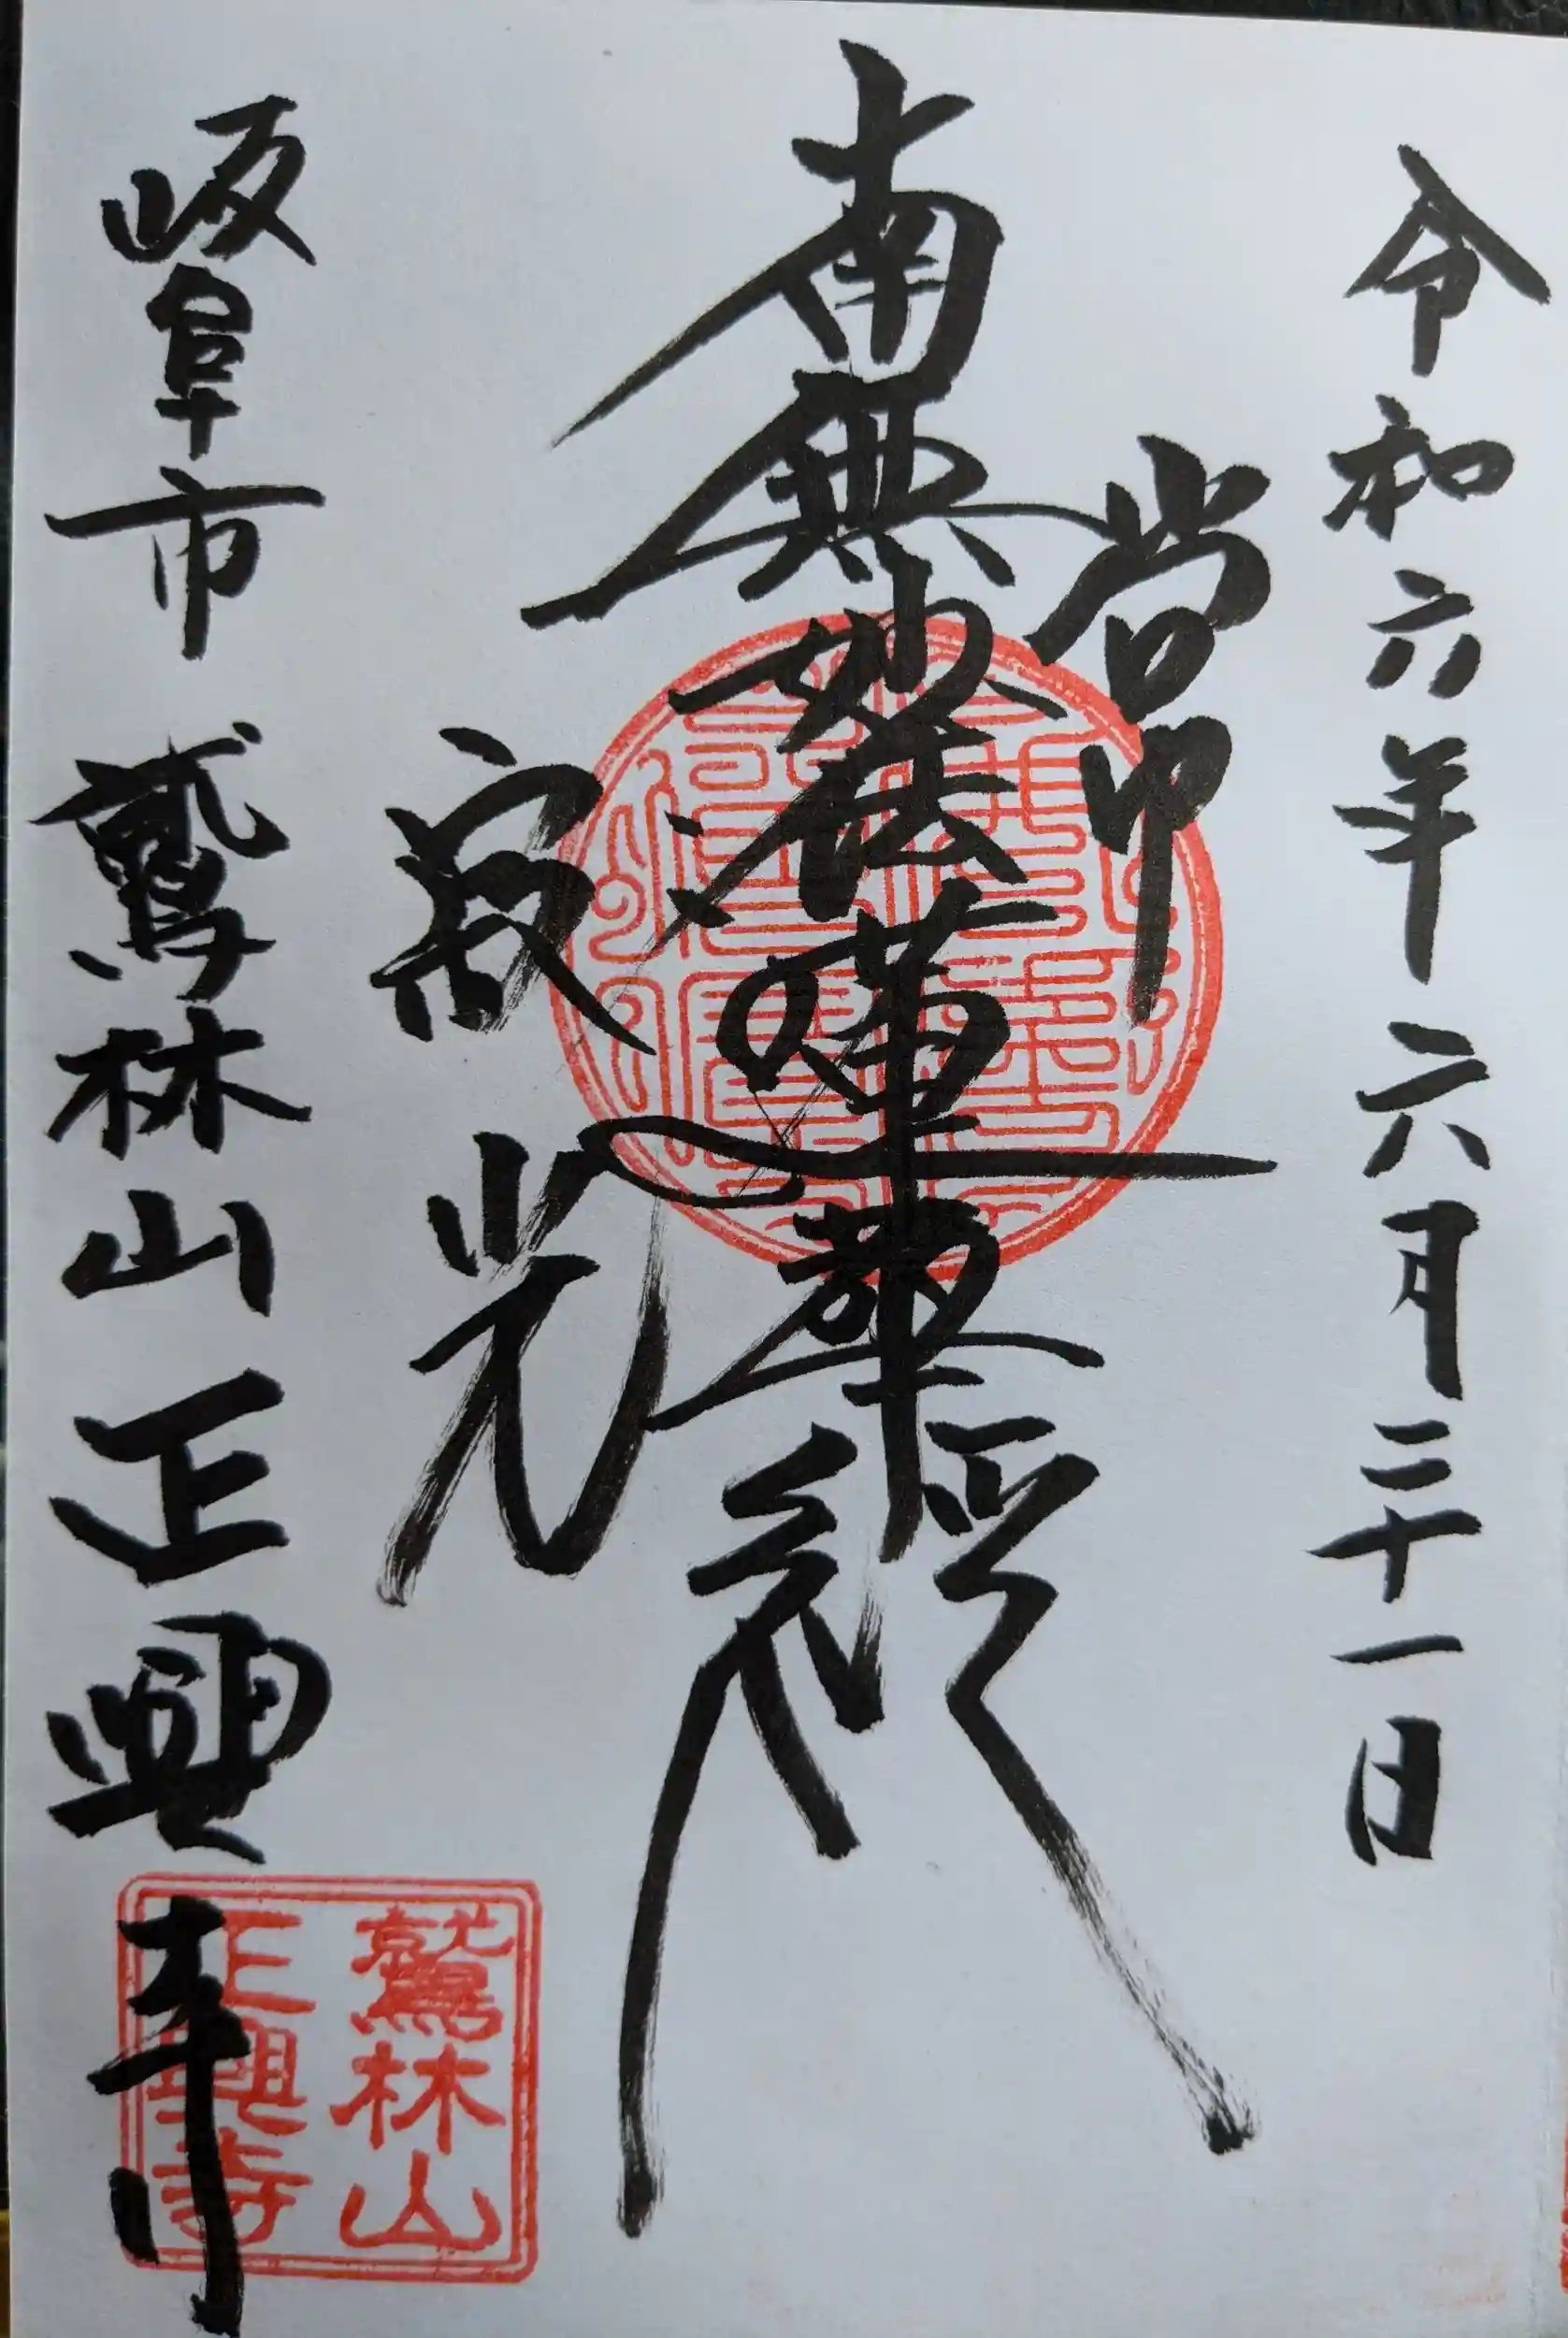 令和六年六月二十一日
常
南無妙法蓮華經
寂光
岐阜市 鷲林山 正興寺
鷲林山
正興寺